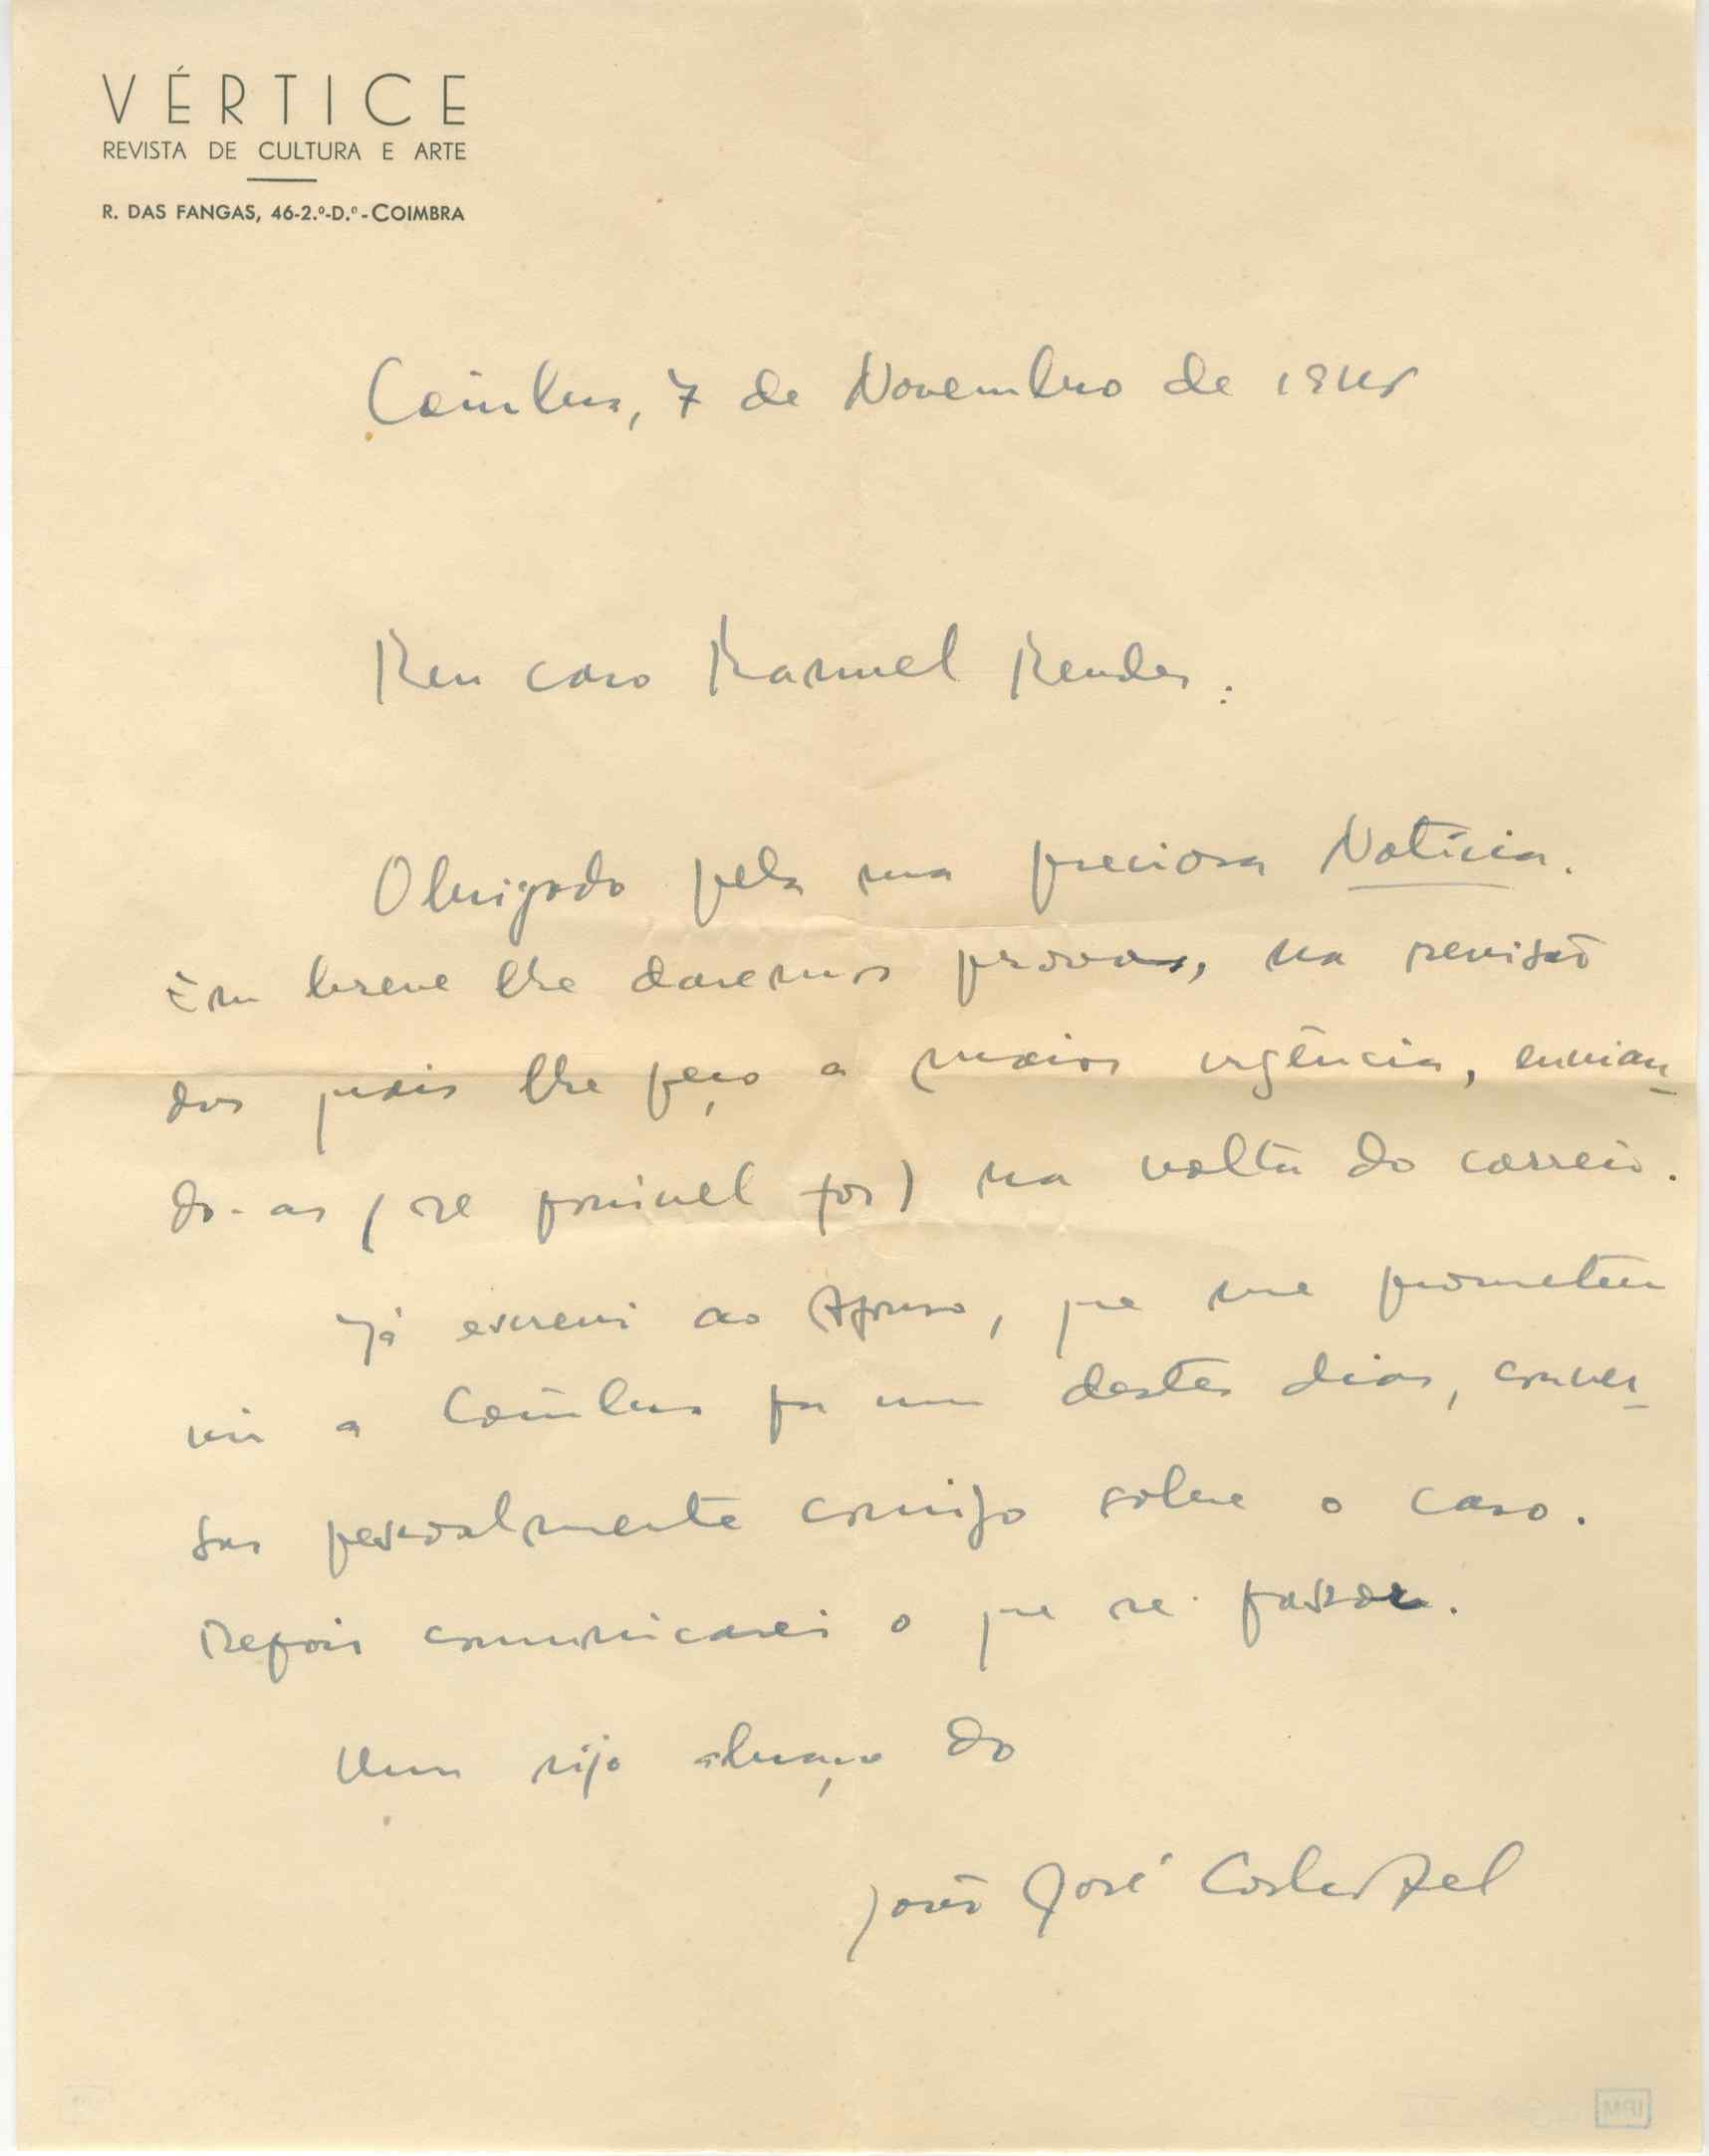 VÉRTICE
REVISTA DE CULTURA E ARTE
R. DAS FANGAS, 46-2.º-D.º - COIMBRA
Coimbra, 7 de Novembro de 1945
Meu caro Manuel Mendes:
Obrigado pela sua preciosa Notícia.
Em breve lhe daremos provas, na revisão
das quais lhe peço a maior urgência, envian-
do-as (se possível for) na volta do correio.
Já escrevi ao Afonso, que me prometeu
vir a Coimbra por um destes dias, conver-
sar pessoalmente comigo sobre o caso.
Depois comunicarei o que se passar.
Um rijo abraço do
João José Cochofel